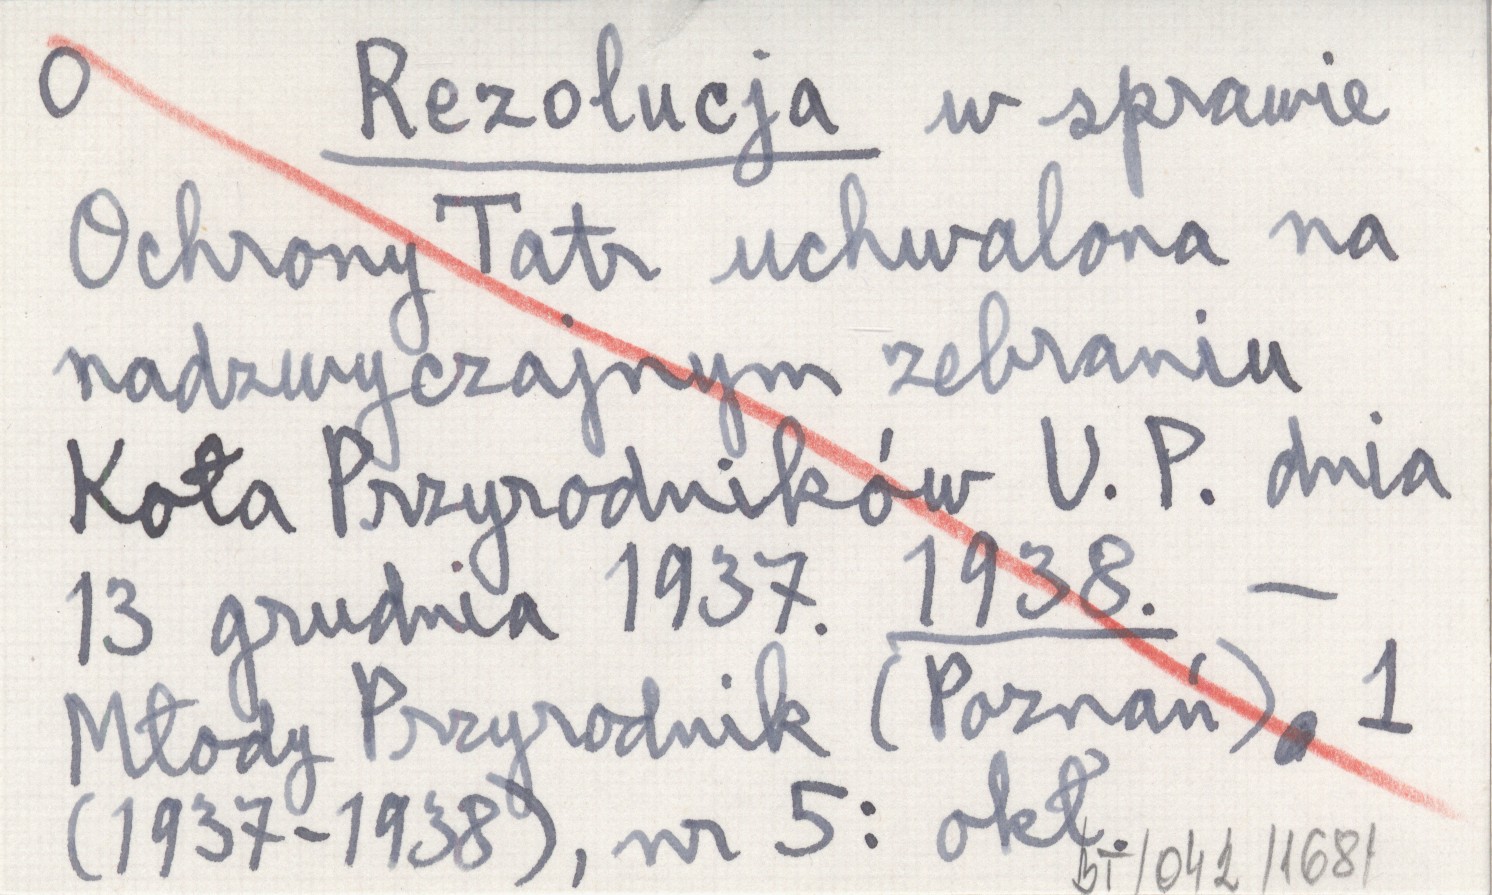 O Rezolucja w sprawie
Ochrony Tatr uchwalona na
nadzwyczajnym zebraniu
Koła Przyrodników U. P. dnia
13 grudnia 1937. 1938. —
Młody Przyrodnik (Poznań). 1
(1937-1938), nr 5: okł.
BT/042/168/